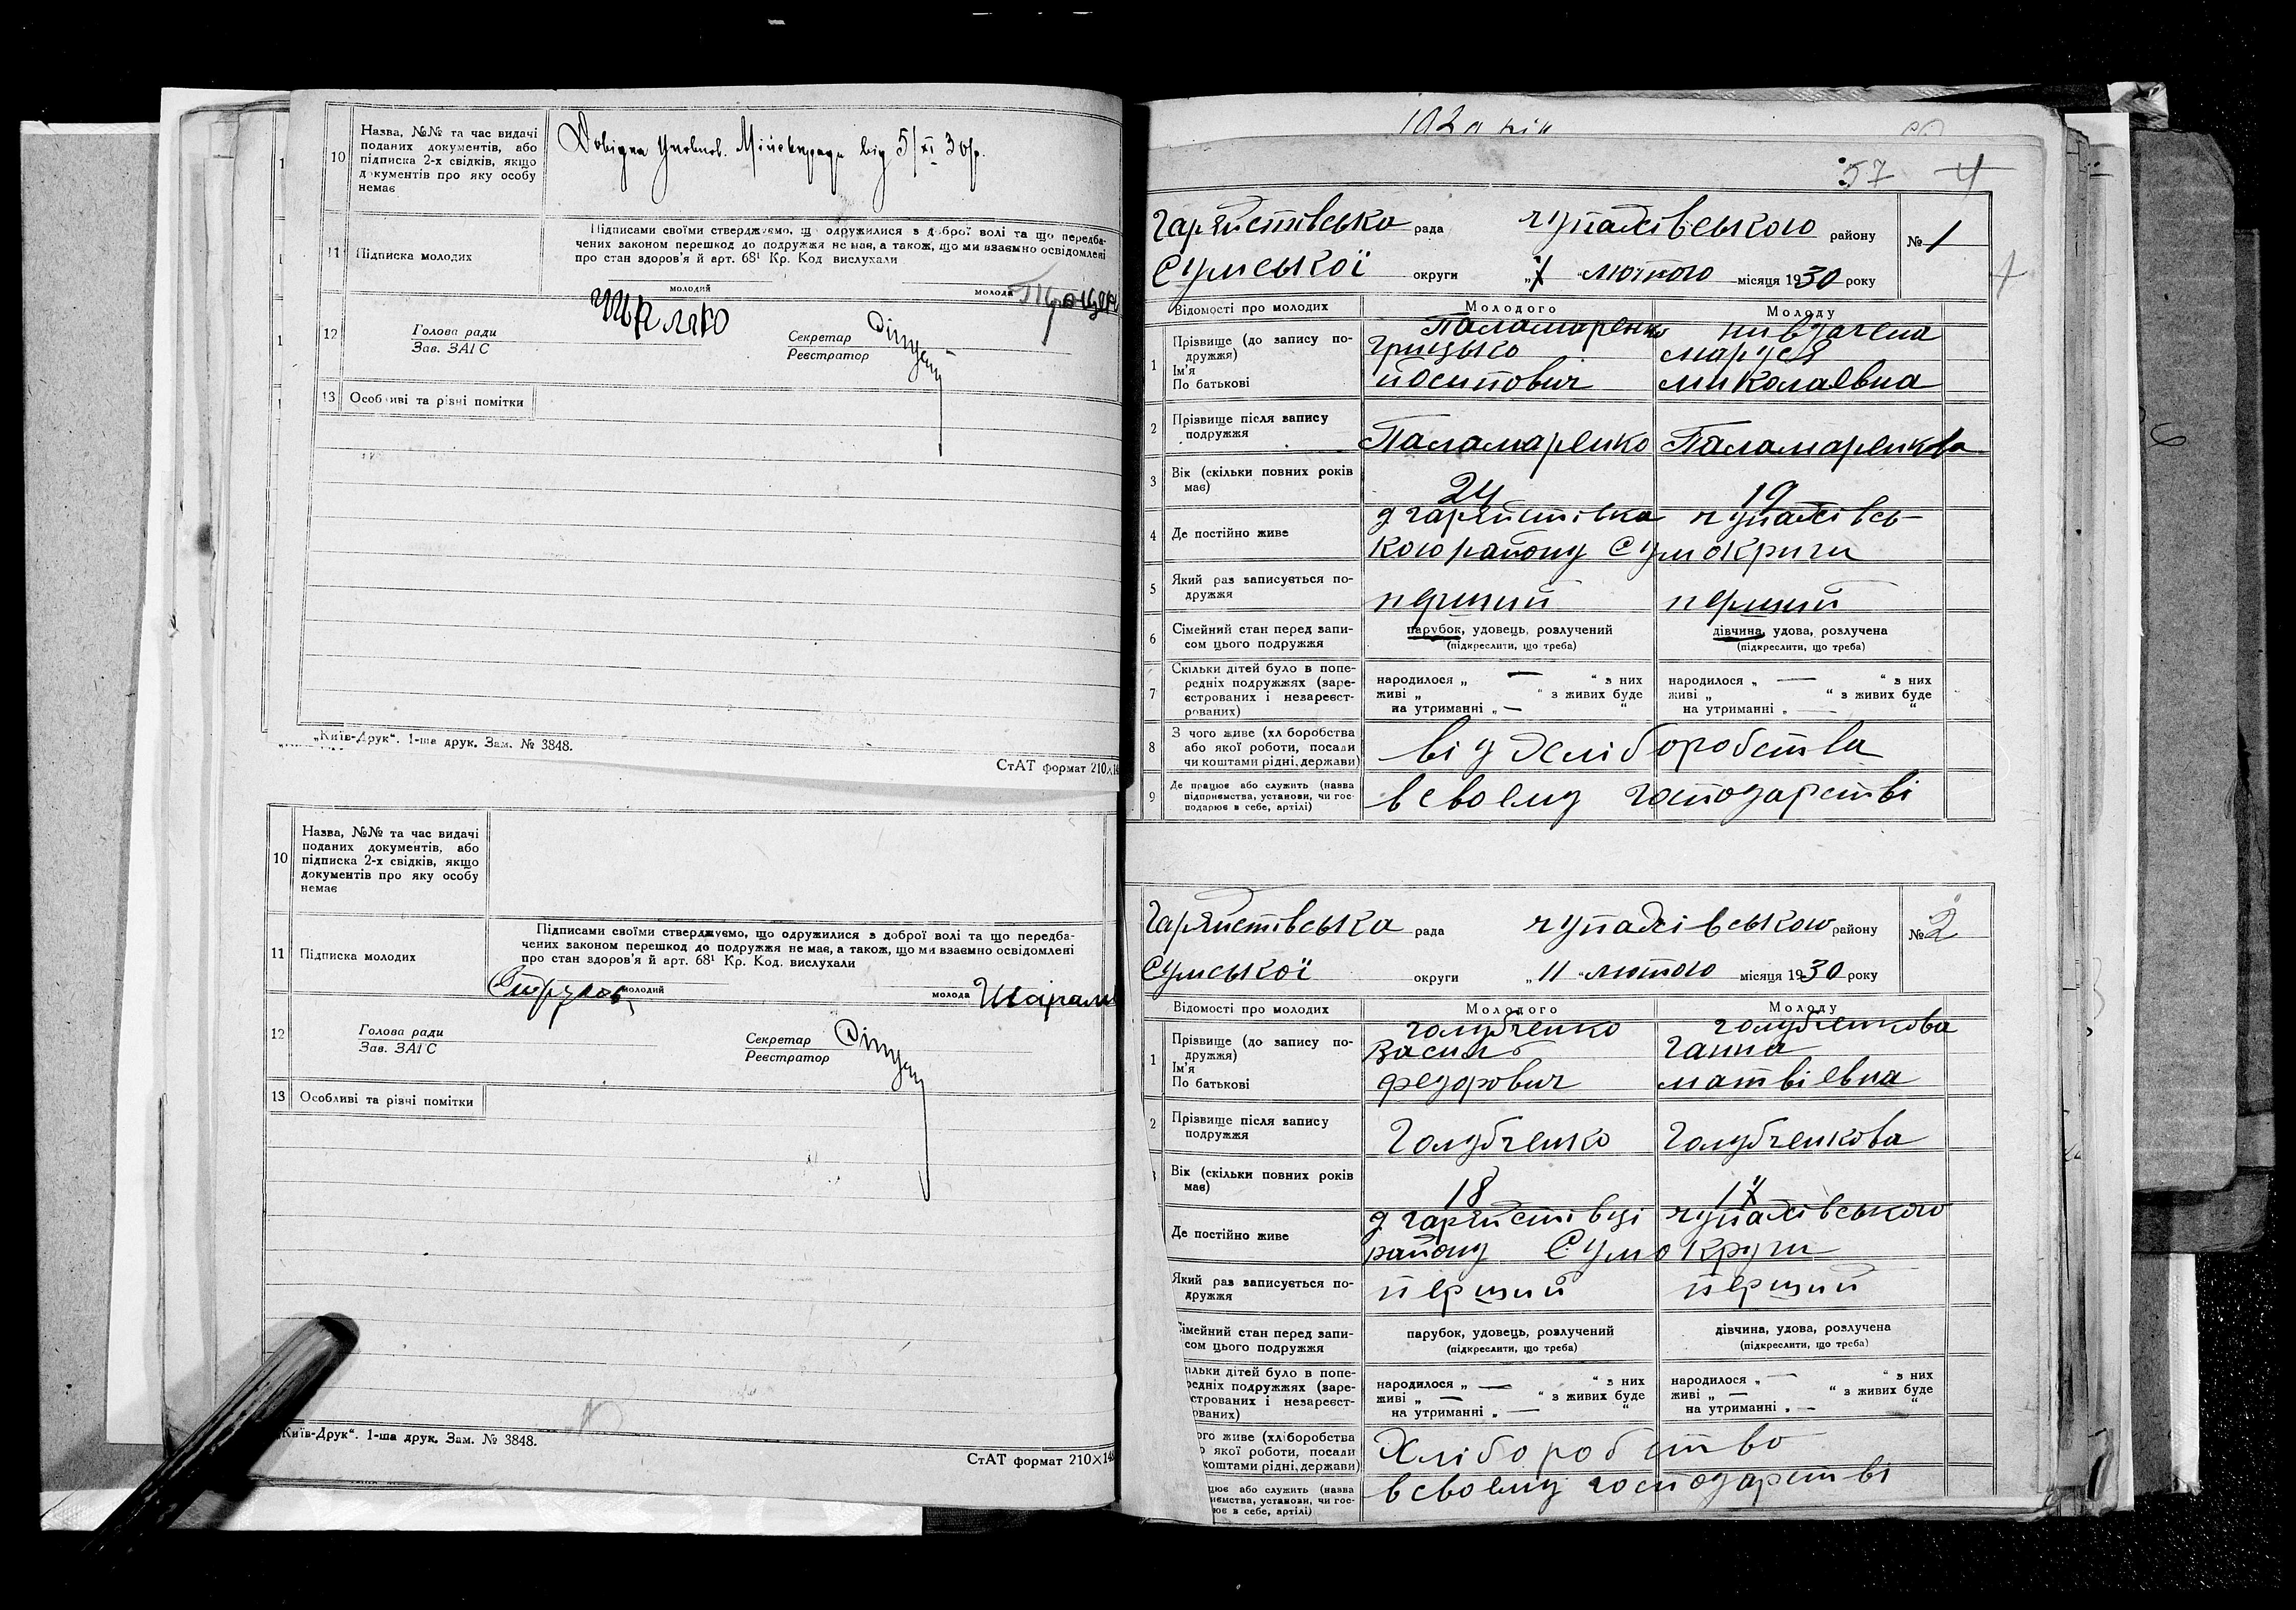 10 Назва, №№ та час видачі
поданих документів, або
підписка 2-х свідків, якщо
документів про яку особу
немає
Довідка Уповнов. Міськради від 5/XI 30р.
11 Підписка молодих
Підписами своїми стверджуємо, що одружилися з доброї волі та що передба-
чених законом перешкод до подружжя не має, а також, що ми взаємно освідомлені
про стан здоров'я й арт. 68¹ Кр. Код вислухали
молодий
молода
Шкляко
12 Голова ради
Зав. ЗАГС
Секретар
Реєстратор
13 Особливі та різні помітки
„Київ-Друк“. 1-ша друк. Зам. № 3848.
СтАТ формат 210×14
10 Назва, №№ та час видачі
поданих документів, або
підписка 2-х свідків, якщо
документів про яку особу
немає
11 Підписка молодих
Підписами своїми стверджуємо, що одружилися з доброї волі та що передба-
чених законом перешкод до подружжя не має, а також, що ми взаємно освідомлені
про стан здоров'я й арт. 68¹ Кр. Код. вислухали
молодий
молода
12 Голова ради
Зав. ЗАГС
Секретар
Реєстратор
13 Особливі та різні помітки
„Київ-Друк“. 1-ша друк. Зам. № 3848.
СтАТ формат 210×148
57 4
Гаряйстівська рада Чупахівського району № 1
Сумської округи „7“ лютого місяця 1930 року
Відомості про молодих Молодого Молоду
1 Прізвище (до запису по-
дружжя)
Ім'я
По батькові
Паламаренко
Грицько
йосипович
Маруся
миколаевна
2 Прізвище після запису
подружжя
Паламаренко Паламаренкова
3 Вік (скільки повних років
має)
24 19
4 Де постійно живе
д гаряйстівка чупахівсь-
кого району Сумокриги
5 Який раз записується по-
дружжя
перший перший
6 Сімейний стан перед запи-
сом цього подружжя
парубок, удовець, розлучений
(підкреслити, що треба)
дівчина, удова, розлучена
(підкреслити, що треба)
7 Скільки дітей було в попе-
редніх подружжях (заре-
єстрованих і незареєст-
рованих)
народилося „ — “ з них
живі „ “ з живих буде
на утриманні „ — “
народилося „ — “ з них
живі „ “ з живих буде
на утриманні „ — “
8 З чого живе (хліборобства
або якої роботи, посади
чи коштами рідні, держави)
від хліборобства
9 Де працює або служить (назва
підприємства, установи, чи гос-
подарює в себе, артілі)
всвоему господарстві
Гаряйстівська рада чупахівського району № 2
Сумської округи „11“ лютого місяця 1930 року
Відомості про молодих Молодого Молоду
1 Прізвище (до запису по-
дружжя)
Ім'я
По батькові
голубченко
Василь
федорович
голубченкова
Ганна
матвіевна
2 Прізвище після запису
подружжя
Голубченко Голубченкова
Вік (скільки повних років
має)
18 17
Де постійно живе
д гаряйстівці чупахівського
району Сумокруги
Який раз записується по-
дружжя
перший перший
Сімейний стан перед запи-
сом цього подружжя
парубок, удовець, розлучений
(підкреслити, що треба)
дівчина, удова, розлучена
(підкреслити, що треба)
ільки дітей було в попе-
редніх подружжях (заре-
єстрованих і незареєст-
ованих)
народилося „ — “ з них
живі „ — “ з живих буде
на утриманні „ — “
народилося „ — “ з них
живі „ — “ з живих буде
на утриманні „ — “
ого живе (хліборобства
якої роботи, посади
коштами рідні, держави)
Хліборобство
цює або служить (назва
иємства, установи, чи гос-
ює в себе, артілі)
всвоему господарстві